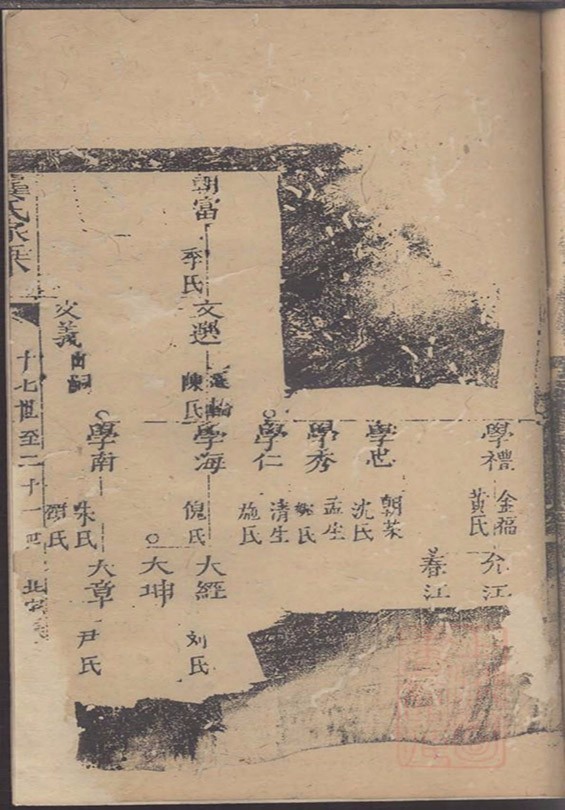 學禮
金福
黃氏
允江
春江
學也
朝榮
沈氏
學秀
孟生
氏
學仁
清生
施氏
朝富
季氏
文選
陳氏
學海
倪氏
大經
刘氏
大坤
學南
朱氏
氏
大章
尹氏
文義
嗣
氏家乘
十七世至二十一